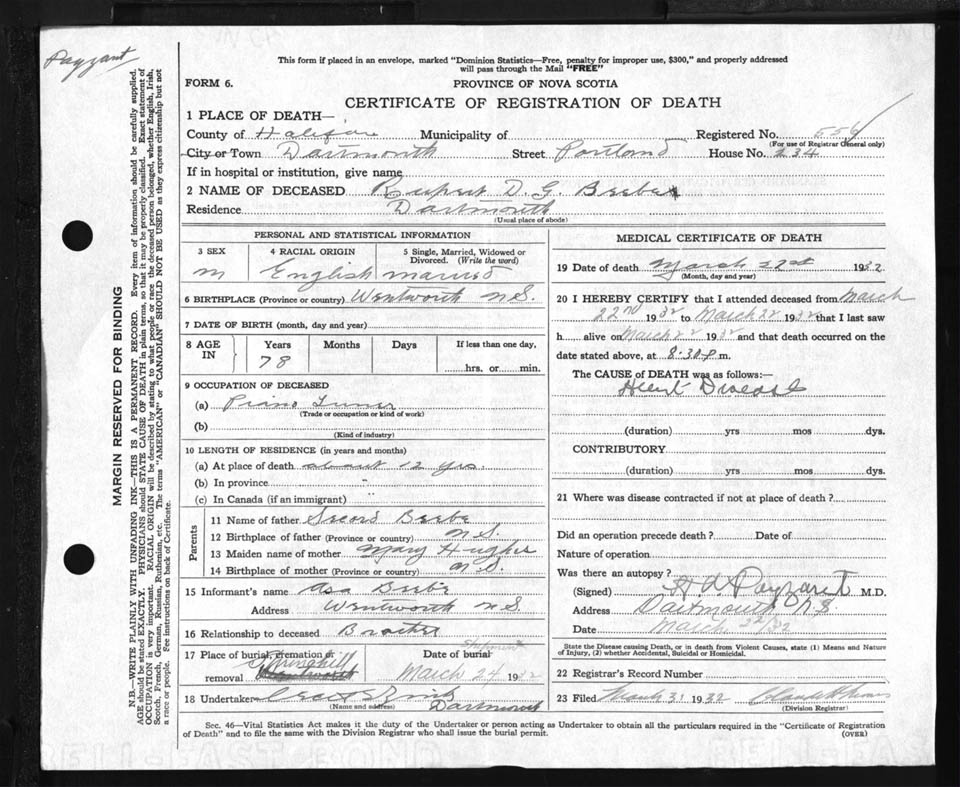 Payzant
This form if placed in an envelope, marked "Dominion Statistics—Free, penalty for improper use, $300," and properly addressed
will pass through the Mail "FREE"
FORM 6.
PROVINCE OF NOVA SCOTIA
CERTIFICATE OF REGISTRATION OF DEATH
1 PLACE OF DEATH—
County of Halifax Municipality of Registered No. 556
(For use of Registrar General only)
City or Town Dartmouth Street Portland House No. 234
If in hospital or institution, give name
2 NAME OF DECEASED Rupert D. G. Beebe
Residence Dartmouth
(Usual place of abode)
MARGIN RESERVED FOR BINDING
N.B.—WRITE PLAINLY WITH UNFADING INK—THIS IS A PERMANENT RECORD. Every item of information should be carefully supplied.
AGE should be stated EXACTLY. PHYSICIANS should STATE CAUSE OF DEATH in plain terms, so that it may be properly classified. Exact statement of
OCCUPATION is very important. RACIAL ORIGIN will be described by stating to what people or race the deceased person belonged, whether English, Irish,
Scotch, French, German, Russian, Ruthenian, etc. The terms "AMERICAN" or "CANADIAN" SHOULD NOT BE USED as they express citizenship but not
a race or people. See instructions on back of Certificate.
PERSONAL AND STATISTICAL INFORMATION
3 SEX
m
4 RACIAL ORIGIN
English
5 Single, Married, Widowed or
Divorced. (Write the word)
married
6 BIRTHPLACE (Province or country) Wentworth N.S.
7 DATE OF BIRTH (month, day and year)
8 AGE
IN
Years Months Days If less than one day,
78
hrs. or min.
9 OCCUPATION OF DECEASED
(a) Piano Tuner
(Trade or occupation or kind of work)
(b)
(Kind of industry)
10 LENGTH OF RESIDENCE (in years and months)
(a) At place of death about 12 yrs.
(b) In province "
(c) In Canada (if an immigrant)
Parents
11 Name of father Beebe
12 Birthplace of father (Province or country) N.S.
13 Maiden name of mother Mary Hughes
14 Birthplace of mother (Province or country) N.S.
15 Informant's name Asa Beebe
Address Wentworth N.S.
16 Relationship to deceased Brother
17 Place of burial, cremation or
removal Springhill
Wentworth
Date of burial
Shipment
March 24 1932
18 Undertaker
(Name and address) Dartmouth
MEDICAL CERTIFICATE OF DEATH
19 Date of death March 22nd 1932
(Month, day and year)
20 I HEREBY CERTIFY that I attended deceased from March
22nd 1932 to March 22 1932 that I last saw
h alive on March 22 1932 and that death occurred on the
date stated above, at 8:30 p. m.
The CAUSE OF DEATH was as follows:
Heart Disease
(duration) yrs mos dys.
CONTRIBUTORY
(duration) yrs mos dys.
21 Where was disease contracted if not at place of death?
Did an operation precede death? Date of
Nature of operation
Was there an autopsy?
(Signed) Payzant M.D.
Address Dartmouth N.S.
Date March 22/32
State the Disease Causing Death, or in death from Violent Causes, state (1) Means and Nature
of Injury, (2) whether Accidental, Suicidal or Homicidal.
22 Registrar's Record Number
23 Filed March 31 1932
(Division Registrar)
Sec. 46—Vital Statistics Act makes it the duty of the Undertaker or person acting as Undertaker to obtain all the particulars required in the "Certificate of Registration
of Death" and to file the same with the Division Registrar who shall issue the burial permit.
(OVER)